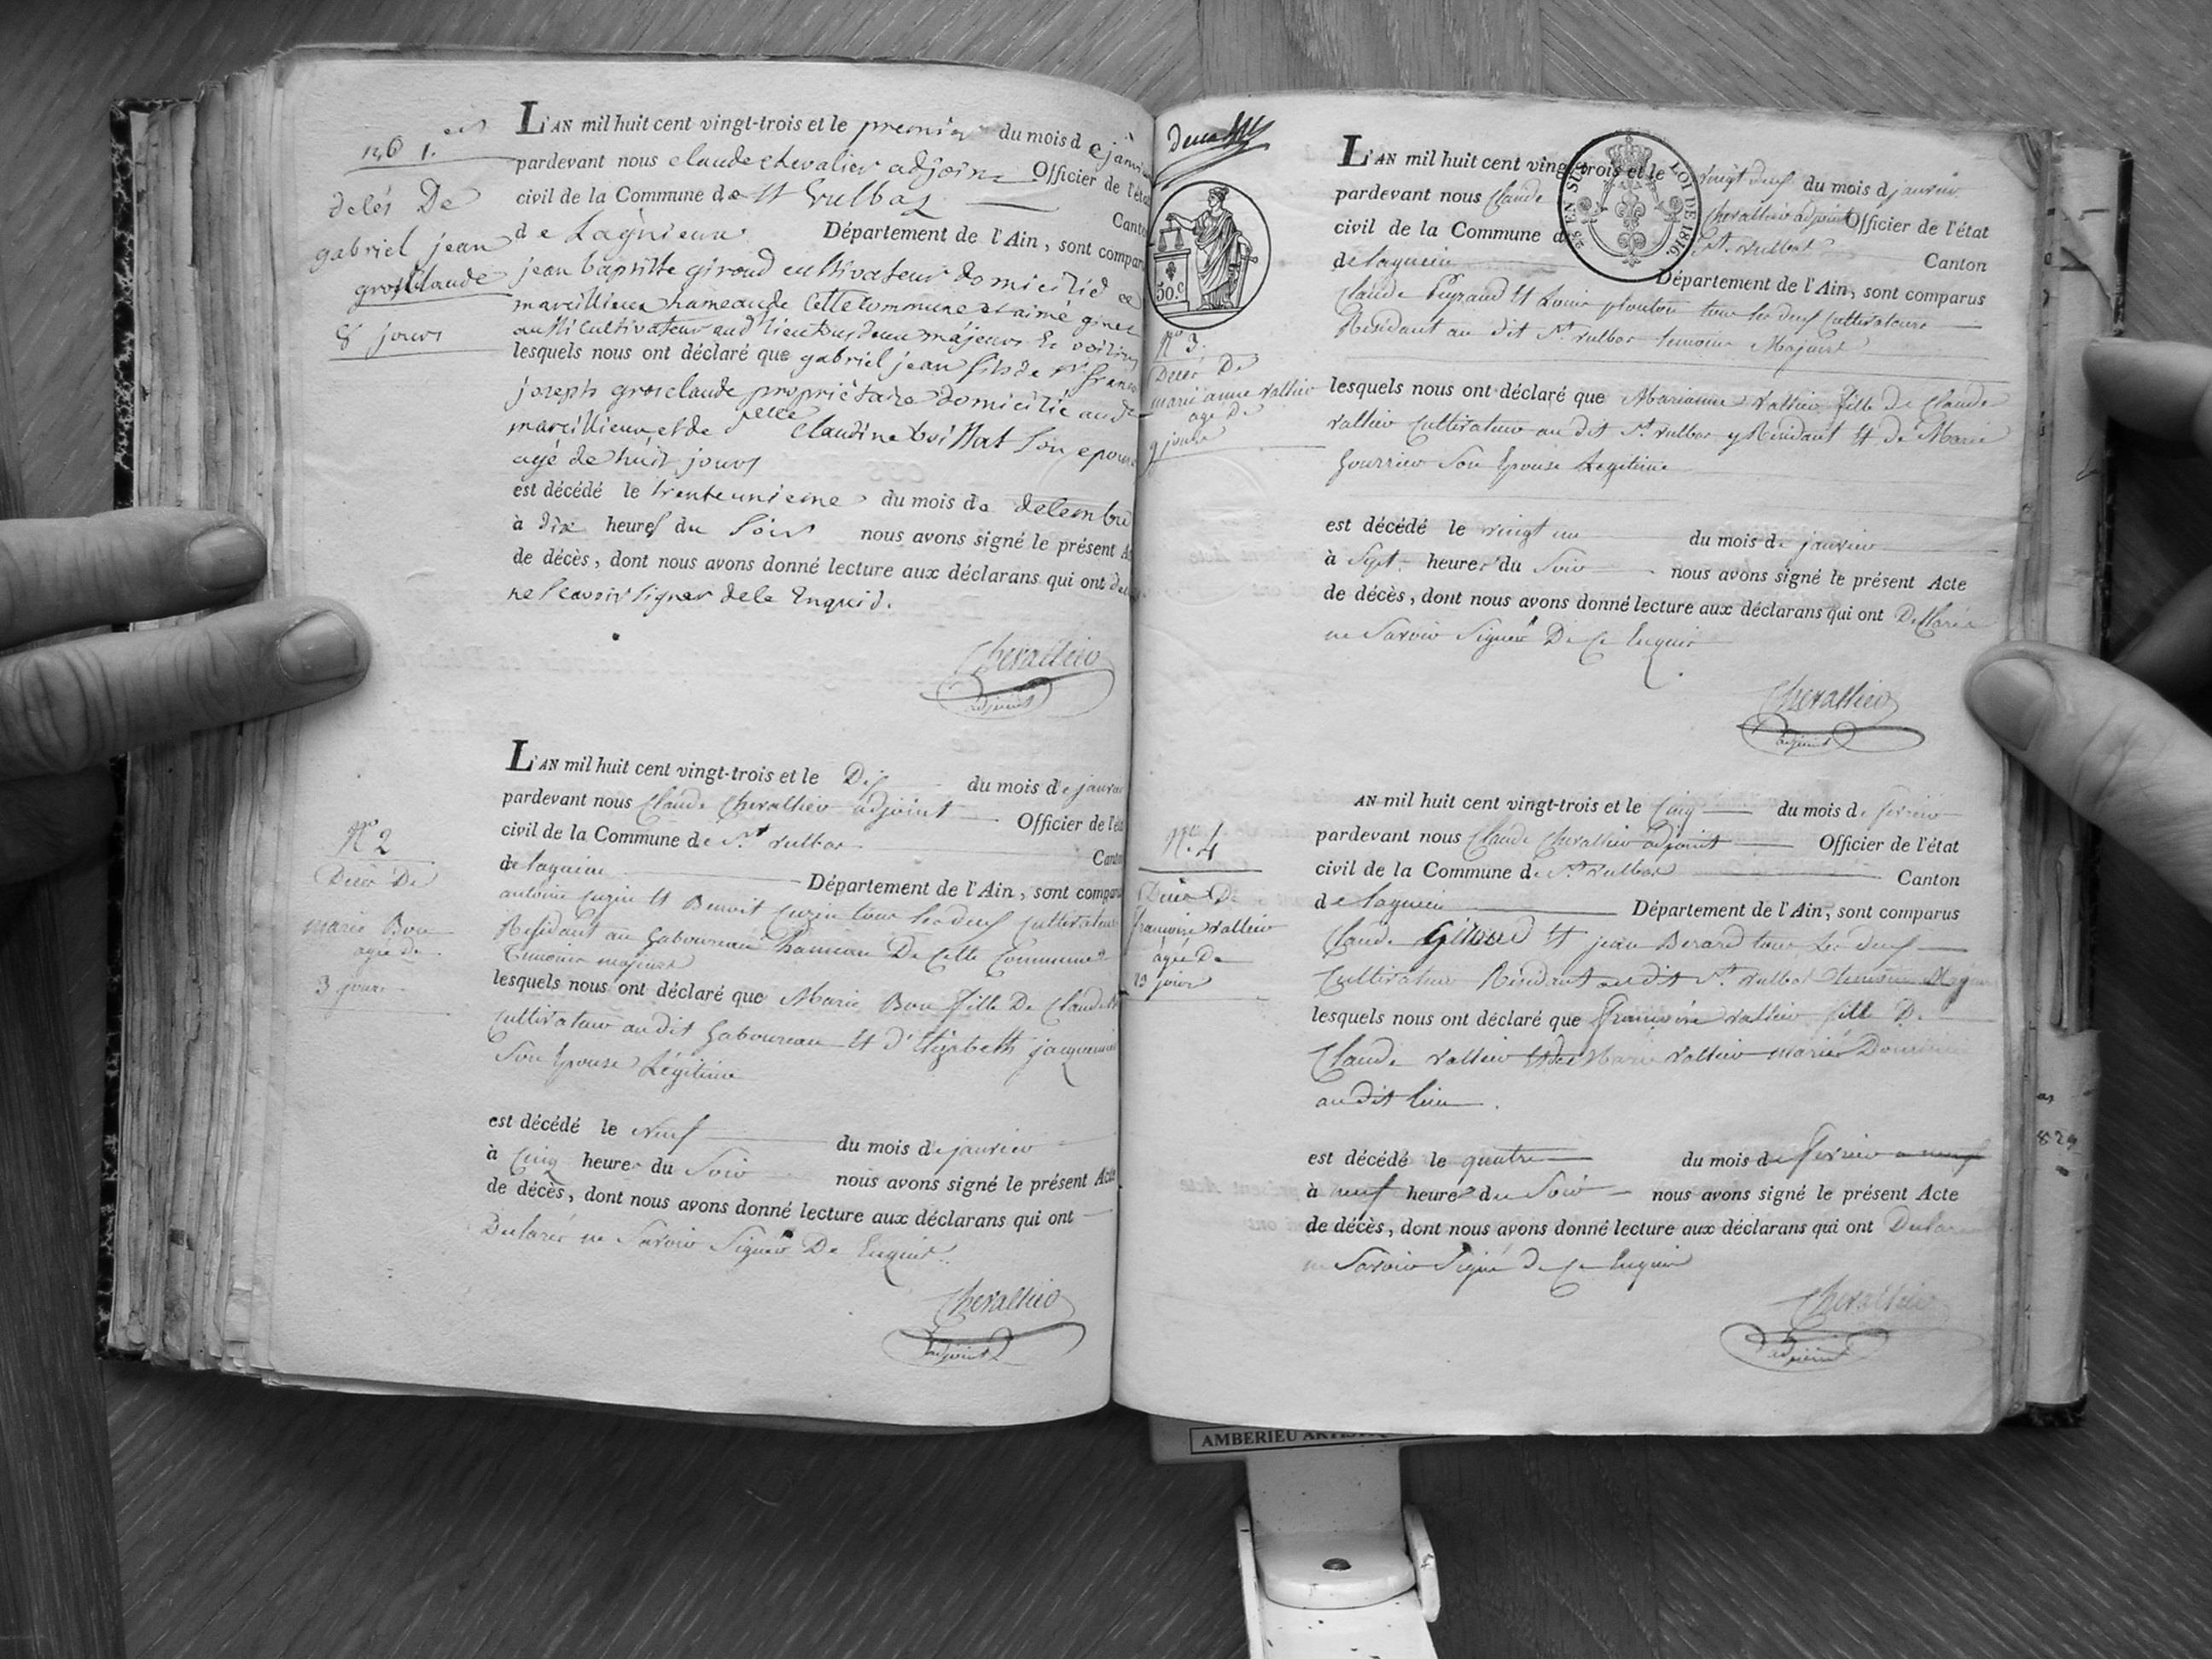 nô 1.
deles De
gabriel jean
grosclaude
8 jours
L'AN mil huit cent vingt-trois et le premier du mois de janvier
pardevant nous claude chevalier adjoint Officier de l'état
civil de la Commune de St Vulbas Canton
de Lagnieux Département de l'Ain, sont comparus
jean baptiste giroud cultivateur domicilié
marcillieux hameau de cette commune et aimé
aussi cultivateur aud lieu tous deux majeurs
lesquels nous ont déclaré que gabriel jean fils de
joseph grosclaude propriétaire domicilié aud
marcillieux et de claudine son epouse
agé de huit jours
est décédé le trenteunieme du mois de decembre
à dix heures du soir nous avons signé le présent
de décès, dont nous avons donné lecture aux déclarans qui ont
ne scavoir signer dele Enquid.
Chevallier
adjoint
N° 2
Décès De
marie Bon
agée de
3 jours
L'AN mil huit cent vingt-trois et le Dix du mois de janvier
pardevant nous Claude Chevallier adjoint Officier de l'état
civil de la Commune de St Vulbas Canton
de lagnieu Département de l'Ain, sont comparus
antoine et Benoit tous les deux cultivateurs
Résidant au Gaboureau hameau De Cette Commune
temoins majeurs
lesquels nous ont déclaré que Marie Bon fille De Claude
cultivateur au dit Gaboureau et d'Elizabeth
Son Epouse Légitime
est décédé le neuf du mois de janvier
à cinq heures du Soir nous avons signé le présent Acte
de décès, dont nous avons donné lecture aux déclarans qui ont
Déclarés ne Savoir Signer De Enquis
Chevallier
adjoint
50 c
N° 3.
Décès De
marie anne vallier
agé De
9 jours
EN SUS LOI DE 1816
L'AN mil huit cent vingt-trois et le vingt deux du mois d janvier
pardevant nous Claude Chevallier adjoint Officier de l'état
civil de la Commune de St Vulbas Canton
de lagnieu Département de l'Ain, sont comparus
Claude Peyraud et Louis tous les deux Cultivateurs
Residant au dit St Vulbas temoins Majeurs
lesquels nous ont déclaré que Marianne Vallier fille De Claude
Vallier Cultivateur au dit St Vulbas y Résidant et de Marie
Son Epouse Legitime
est décédé le vingt un du mois de janvier
à Sept heures du Soir nous avons signé le présent Acte
de décès, dont nous avons donné lecture aux déclarans qui ont Déclarés
ne Savoir Signer De Ce Enquis
Chevallier
adjoint
N° 4
Décès De
françoise vallier
agée De
AN mil huit cent vingt-trois et le Cinq du mois de fevrier
pardevant nous Claude Chevallier adjoint Officier de l'état
civil de la Commune de St Vulbas Canton
de lagnieu Département de l'Ain, sont comparus
Claude Giroud et jean Berard tous les deux
Cultivateur Résidant au dit St Vulbas temoins
lesquels nous ont déclaré que françoise Vallier fille De
Claude Vallier et de Marie Vallier mariés
au dit lieu
est décédé le quatre du mois de fevrier a neuf
à neuf heures du Soir nous avons signé le présent Acte
de décès, dont nous avons donné lecture aux déclarans qui ont
ne Savoir Signé de Ce Enquis
Chevallier
adjoint
AMBERIEU